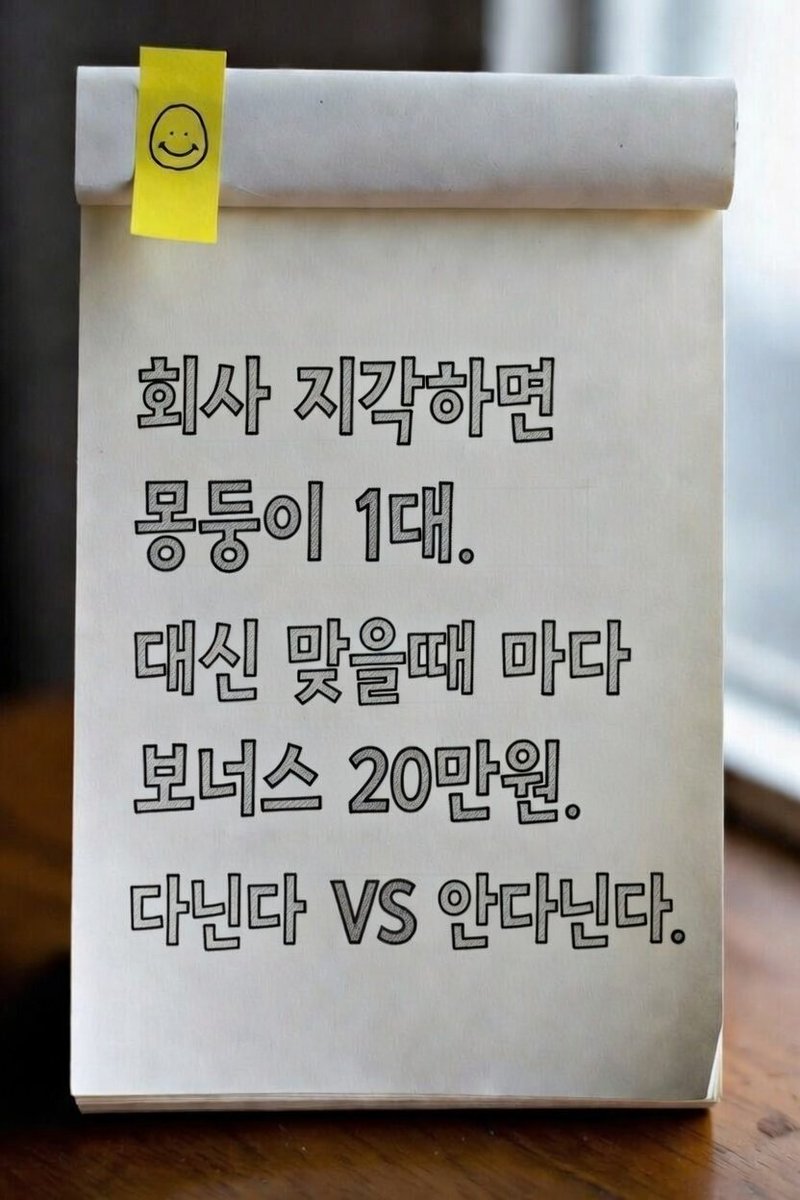 회사 지각하면
몽둥이 1대.
대신 맞을때 마다
보너스 20만원.
다닌다 VS 안다닌다.